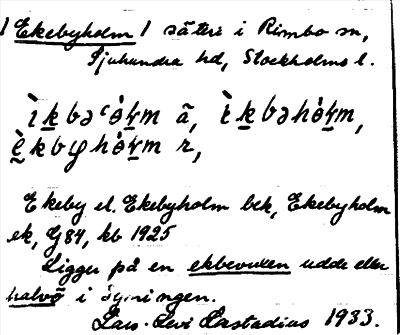 1 Ekebyholm 1 säteri i Rimbo sn,
Sjuhundra hd, Stockholms l.
ìk̠bə‘ȯ́l̠m ã, ìk̠bəhȯ́l̠m,
è̠kbyhȯ́l̠m r,
Ekeby el. Ekebyholm bek, Ekebyholm
ek, G 84, kb 1925
Ligger på en ekbevuxen udde eller
halvö i Syningen.
Lars-Levi Læstadius 1933.